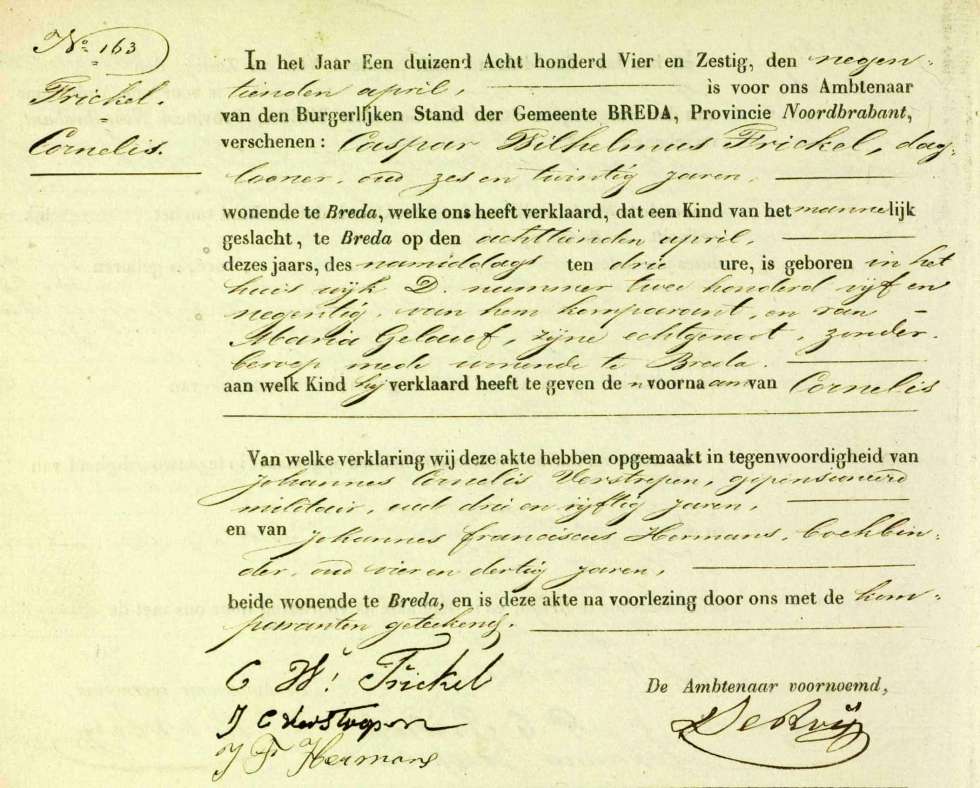 No. 163
Frickel.
Cornelis.
In het Jaar Een duizend Acht honderd Vier en Zestig, den negen-
tienden april, is voor ons Ambtenaar
van den Burgerlijken Stand der Gemeente BREDA, Provincie Noordbrabant,
verschenen: Caspar Wilhelmus Frickel, dag-
looner, oud zes en twintig jaren,
wonende te Breda, welke ons heeft verklaard, dat een Kind van het mannelijk
geslacht, te Breda op den achttienden april,
dezes jaars, des namiddags ten drie ure, is geboren in het
huis wijk D. nummer twee honderd vijf en
negentig, van hem komparant, en van
Maria Gelauf, zijne echtgenoot, zonder
beroep mede wonende te Breda.
aan welk Kind hij verklaard heeft te geven den voornaam van Cornelis
Van welke verklaring wij deze akte hebben opgemaakt in tegenwoordigheid van
Johannes Cornelis Verstrepen, gepensioneerd
militair, oud drie en vijftig jaren,
en van Johannes Franciscus Hermans, boekbin-
der, oud vier en dertig jaren,
beide wonende te Breda, en is deze akte na voorlezing door ons met de kom-
paranten geteekend.
C Wl Frickel
J C Verstrepen
J F Hermans
De Ambtenaar voornoemd,